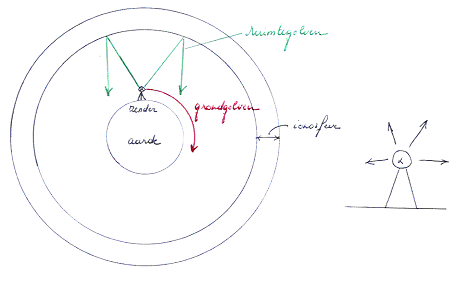 ruimtegolven
zender
grondgolven
ionosfeer
aarde